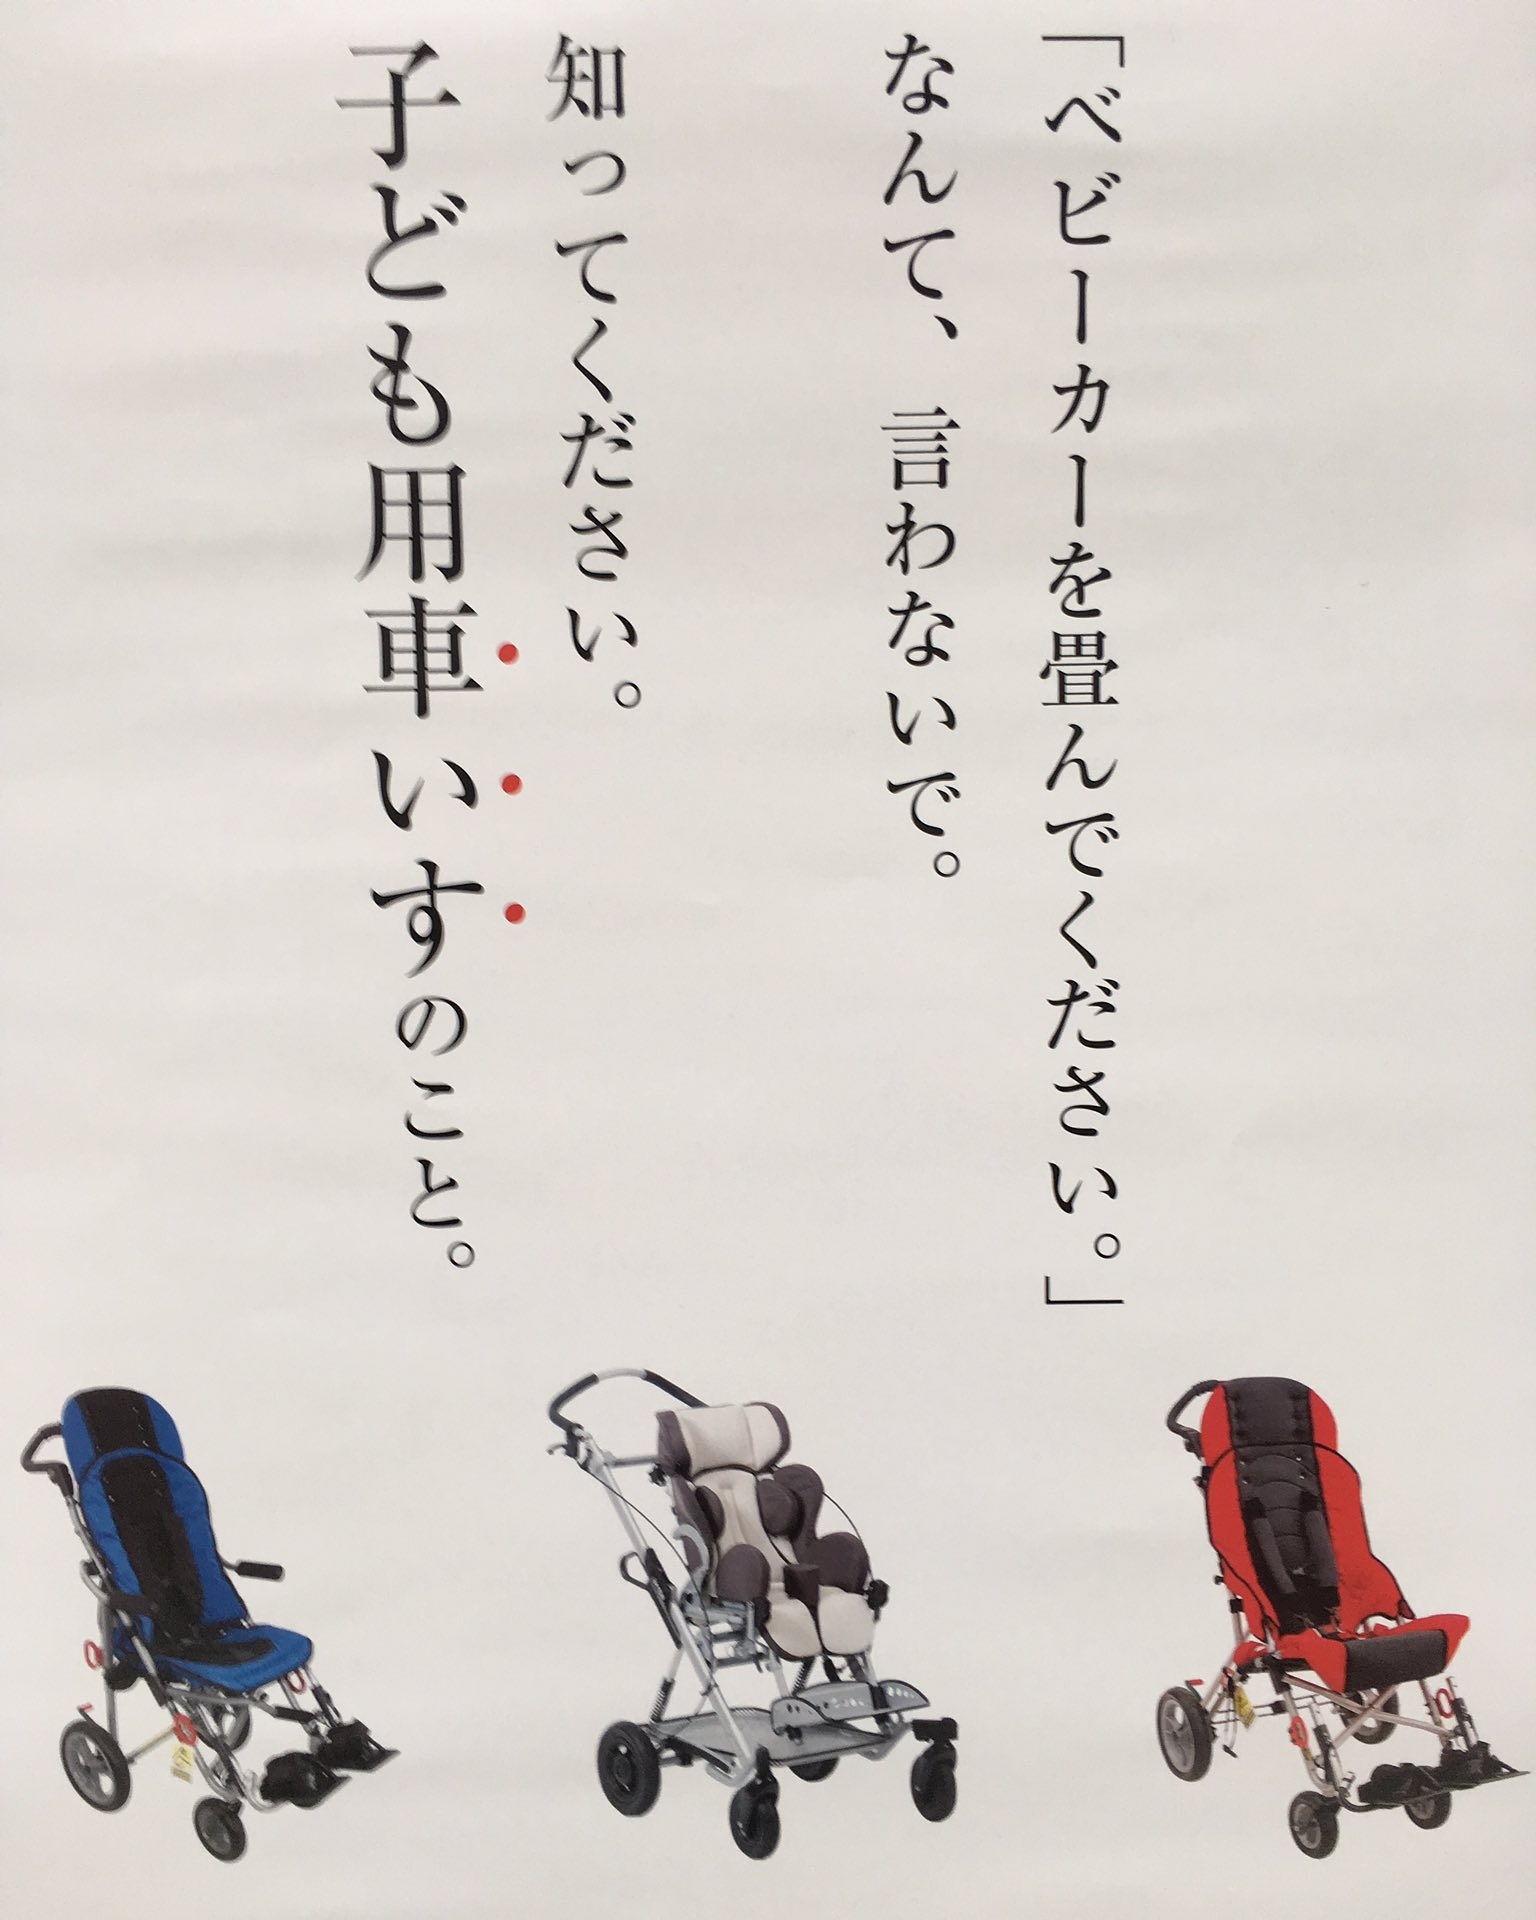 「ベビーカーを畳んでください。」
なんて、言わないで。
知ってください。
子ども用車いすのこと。